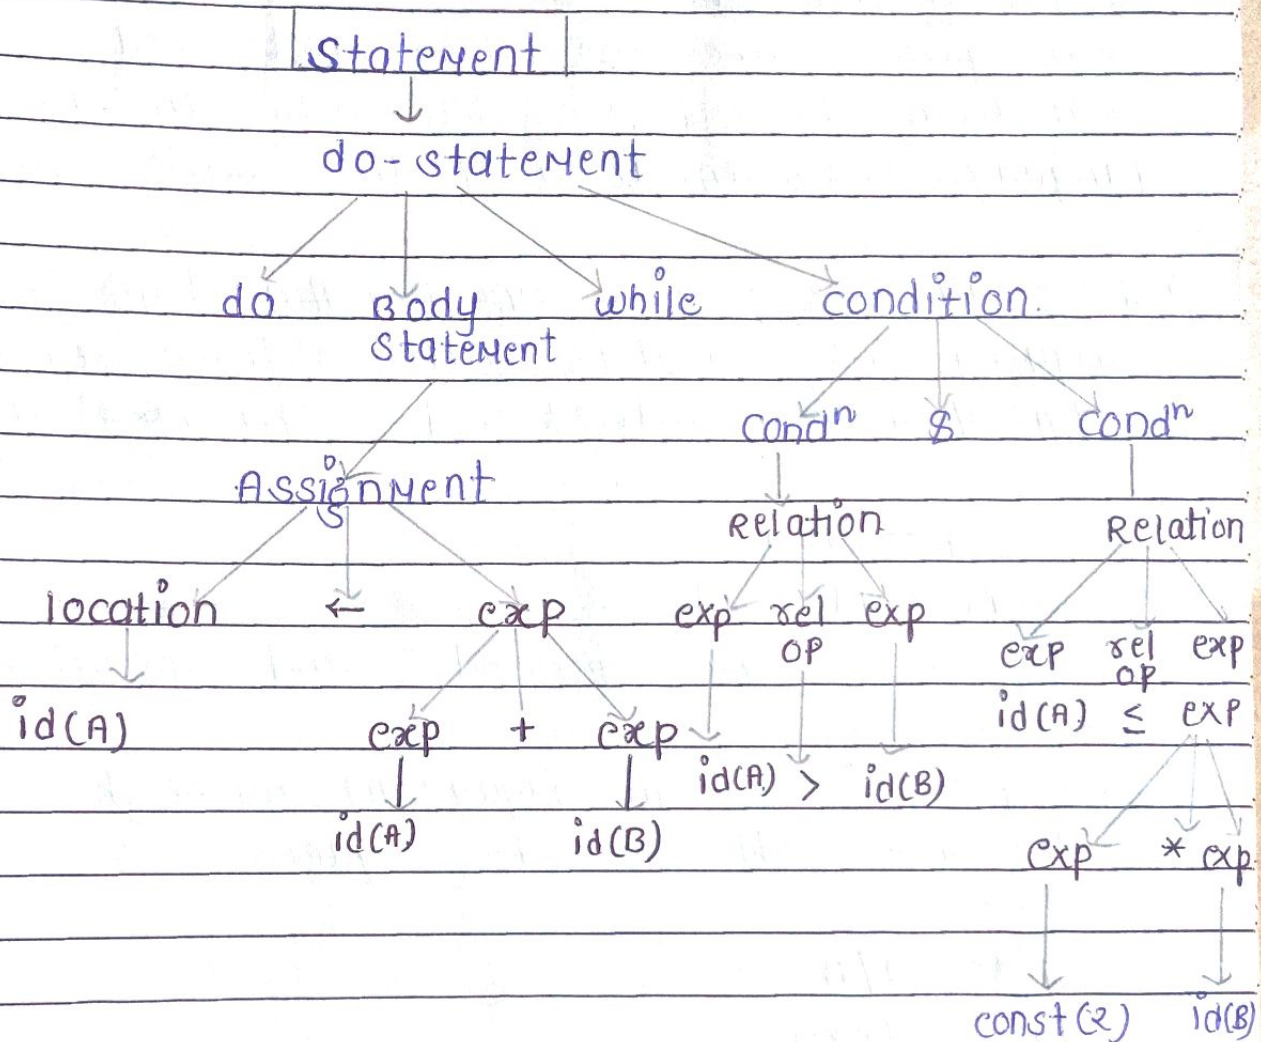 Statement
do-statement
do Body while condition.
statement
condⁿ & condⁿ
Assignment
s
Relation Relation
location ← exp exp rel exp
op
exp rel exp
op
id(A) exp + exp id(A) ≤ exp
id(A) > id(B)
id(A) id(B)
exp * exp
const(2) id(B)